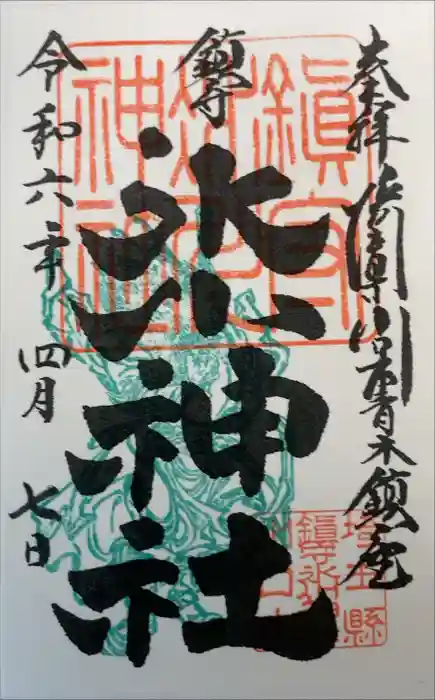 奉拝 川口 青木鎮座
鎮守
氷川神社
令和六年 四月 七日
鎮守
氷川
神社
埼玉縣
鎮守氷川